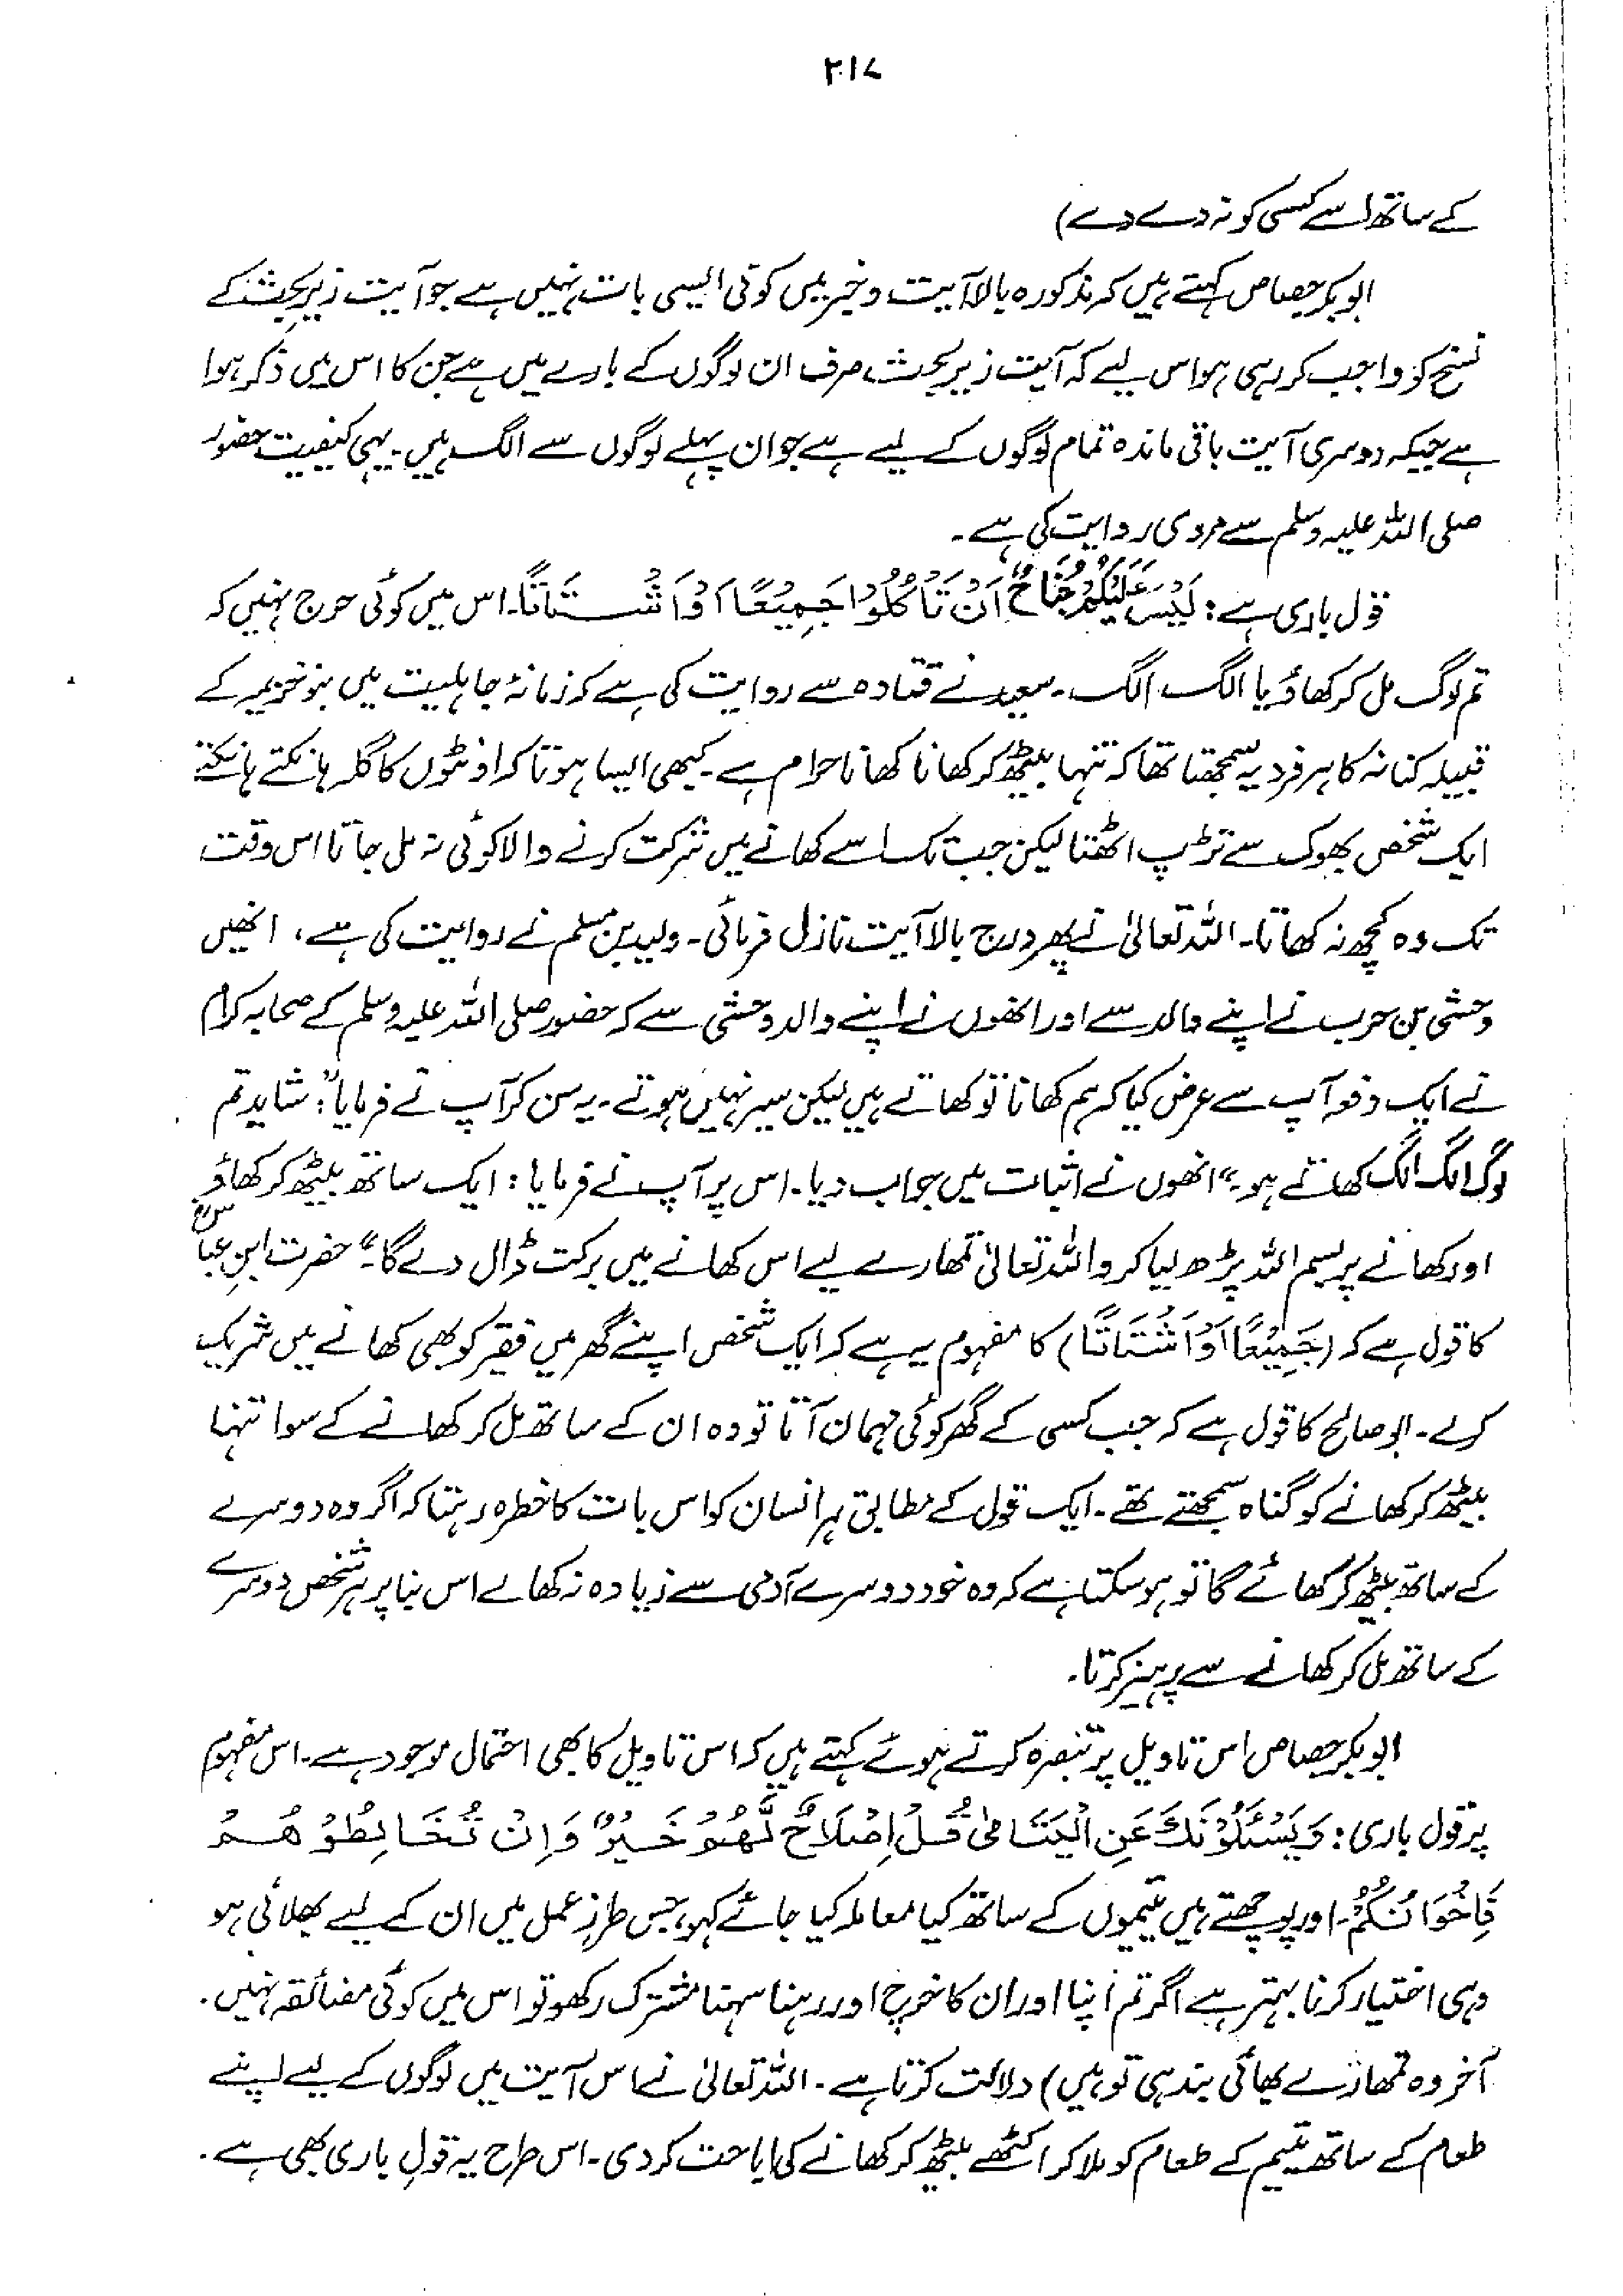 ۲۱۷
کے ساتھ اسے کسی کو نہ دے دے)
ابوبکر جصاص کہتے ہیں کہ مذکورہ بالا آیت و خبر میں کوئی ایسی بات نہیں ہے جو آیت زیر بحث کے
نسخ کو واجب کر رہی ہو اس لیے کہ آیت زیر بحث صرف ان لوگوں کے بارے میں ہے جن کا اس میں ذکر ہوا
ہے جبکہ دوسری آیت باقی ماندہ تمام لوگوں کے لیے ہے جو ان پہلے لوگوں سے الگ ہیں۔ یہی کیفیت حضور
صلی اللہ علیہ وسلم سے مروی روایت کی ہے۔
قول باری ہے: لَیْسَ عَلَیْكُمْ جُنَاحٌ اَنْ تَاْكُلُوْا جَمِیْعًا اَوْ اَشْتَاتًا۔ اس میں کوئی حرج نہیں کہ
تم لوگ مل کر کھاؤ یا الگ الگ۔ سعید نے قتادہ سے روایت کی ہے کہ زمانۂ جاہلیت میں بنو خزیمہ کے
قبیلہ کنانہ کا ہر فرد یہ سمجھتا تھا کہ تنہا بیٹھ کر کھانا کھانا حرام ہے۔ کبھی ایسا ہوتا کہ اونٹوں کا گلہ ہانکتے ہانکتے
ایک شخص بھوک سے تڑپ اٹھتا لیکن جب تک اسے کھانے میں شرکت کرنے والا کوئی نہ مل جاتا اس وقت
تک وہ کچھ نہ کھاتا۔ اللہ تعالیٰ نے پھر درج بالا آیت نازل فرمائی۔ ولید بن مسلم نے روایت کی ہے، انھیں
وحشی بن حرب نے اپنے والد سے اور انھوں نے اپنے والد وحشی سے کہ حضور صلی اللہ علیہ وسلم کے صحابہ کرام
نے ایک دفعہ آپ سے عرض کیا کہ ہم کھانا تو کھاتے ہیں لیکن سیر نہیں ہوتے۔ یہ سن کر آپ نے فرمایا: "شاید تم
لوگ الگ الگ کھاتے ہو۔" انھوں نے اثبات میں جواب دیا۔ اس پر آپ نے فرمایا: ایک ساتھ بیٹھ کر کھاؤ
اور کھانے پر بسم اللہ پڑھ لیا کرو اللہ تعالیٰ تمھارے لیے اس کھانے میں برکت ڈال دے گا۔" حضرت ابنِ عباسؓ
کا قول ہے کہ (جَمِیْعًا اَوْ اَشْتَاتًا) کا مفہوم یہ ہے کہ ایک شخص اپنے گھر میں فقیر کو بھی کھانے میں شریک
کرلے۔ ابو صالح کا قول ہے کہ جب کسی کے گھر کوئی مہمان آتا تو وہ ان کے ساتھ مل کر کھانے کے سوا تنہا
بیٹھ کر کھانے کو گناہ سمجھتے تھے۔ ایک قول کے مطابق ہر انسان کو اس بات کا خطرہ رہتا کہ اگر وہ دوسرے
کے ساتھ بیٹھ کر کھائے گا تو ہو سکتا ہے کہ وہ خود دوسرے آدمی سے زیادہ نہ کھا لے اس بنا پر ہر شخص دوسرے
کے ساتھ مل کر کھانے سے پرہیز کرتا۔
ابوبکر جصاص اس تاویل پر تبصرہ کرتے ہوئے کہتے ہیں کہ اس تاویل کا بھی احتمال موجود ہے۔ اس مفہوم
پر قول باری: وَیَسْئَلُوْنَكَ عَنِ الْیَتَامٰی قُلْ اِصْلَاحٌ لَّهُمْ خَیْرٌ وَاِنْ تُخَالِطُوْهُمْ
فَاِخْوَانُكُمْ۔ اور پوچھتے ہیں یتیموں کے ساتھ کیا معاملہ کیا جائے کہو، جس طرزِ عمل میں ان کے لیے بھلائی ہو
وہی اختیار کرنا بہتر ہے اگر تم اپنا اور ان کا خرچ اور رہنا سہنا مشترک رکھو تو اس میں کوئی مضائقہ نہیں۔
آخر وہ تمھارے بھائی بند ہی تو ہیں) دلالت کرتا ہے۔ اللہ تعالیٰ نے اس آیت میں لوگوں کے لیے اپنے
طعام کے ساتھ یتیم کے طعام کو ملا کر اکٹھے بیٹھ کر کھانے کی اباحت کر دی۔ اس طرح یہ قولِ باری بھی ہے۔